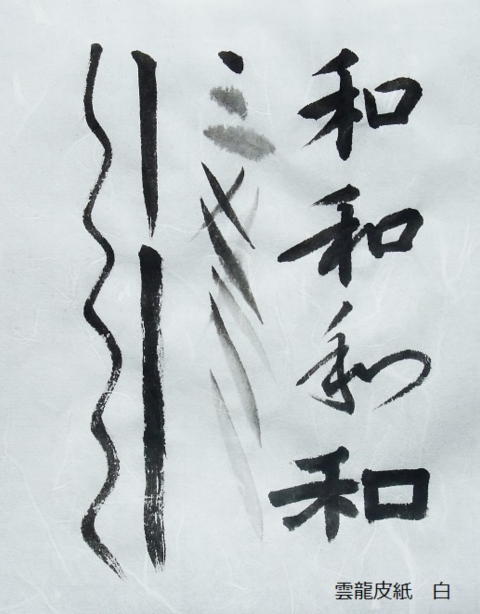 和
和
和
和
雲龍皮紙　白